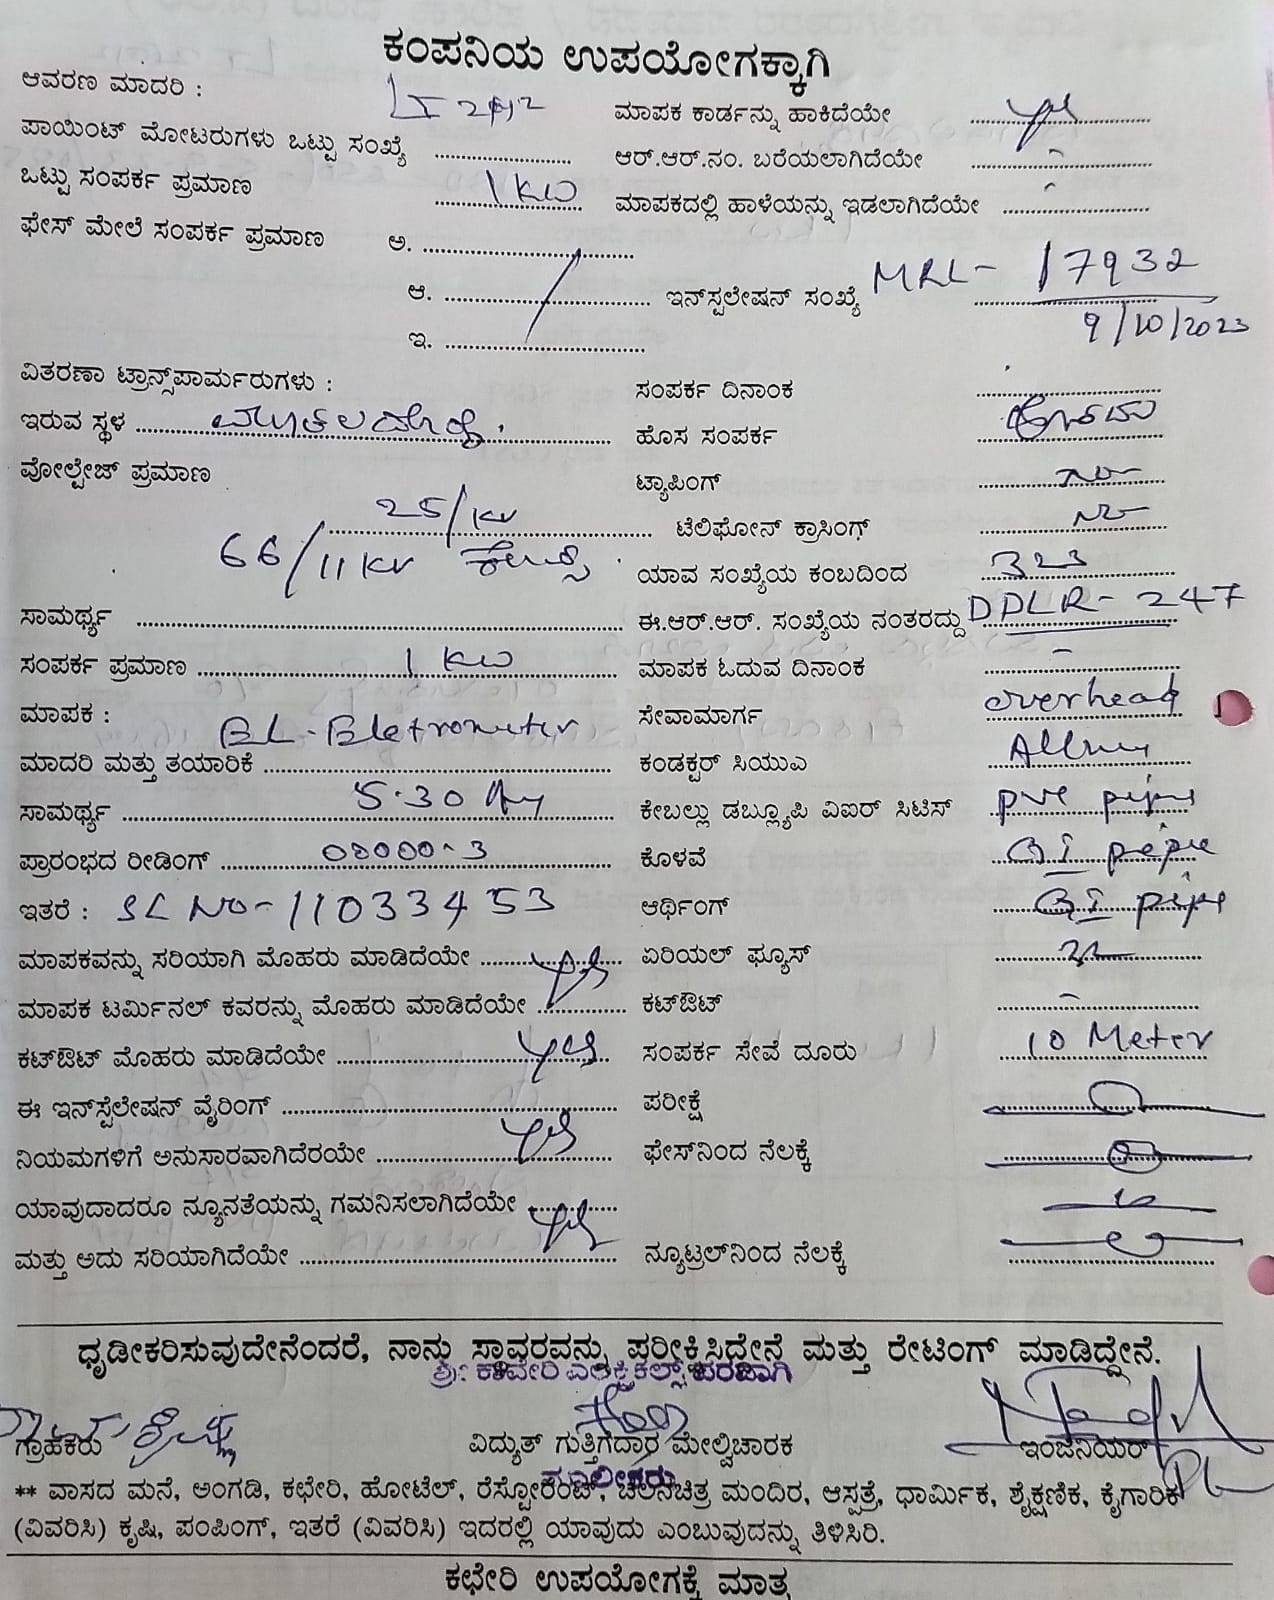 ಕಂಪನಿಯ ಉಪಯೋಗಕ್ಕಾಗಿ
ಆವರಣ ಮಾದರಿ :
ಮಾಪಕ ಕಾರ್ಡನ್ನು ಹಾಕಿದೆಯೇ yes
ಪಾಯಿಂಟ್ ಮೋಟರುಗಳು ಒಟ್ಟು ಸಂಖ್ಯೆ
ಆರ್.ಆರ್.ನಂ. ಬರೆಯಲಾಗಿದೆಯೇ
ಒಟ್ಟು ಸಂಪರ್ಕ ಪ್ರಮಾಣ 1 KW
ಮಾಪಕದಲ್ಲಿ ಹಾಳೆಯನ್ನು ಇಡಲಾಗಿದೆಯೇ
ಫೇಸ್ ಮೇಲೆ ಸಂಪರ್ಕ ಪ್ರಮಾಣ ಅ.
ಆ.
ಇನ್‌ಸ್ಟಲೇಷನ್ ಸಂಖ್ಯೆ MRL- 17932
9/10/2023
ಇ.
ವಿತರಣಾ ಟ್ರಾನ್ಸ್‌ಪಾರ್ಮರುಗಳು :
ಸಂಪರ್ಕ ದಿನಾಂಕ
ಇರುವ ಸ್ಥಳ
ಹೊಸ ಸಂಪರ್ಕ
ವೋಲ್ಟೇಜ್ ಪ್ರಮಾಣ
ಟ್ಯಾಪಿಂಗ್ No
25/KV
ಟೆಲಿಫೋನ್ ಕ್ರಾಸಿಂಗ್ No
66/11KV
ಯಾವ ಸಂಖ್ಯೆಯ ಕಂಬದಿಂದ 323
ಸಾಮರ್ಥ್ಯ
ಈ.ಆರ್.ಆರ್. ಸಂಖ್ಯೆಯ ನಂತರದ್ದು DPLR- 247
ಸಂಪರ್ಕ ಪ್ರಮಾಣ 1 KW
ಮಾಪಕ ಓದುವ ದಿನಾಂಕ -
ಮಾಪಕ :
ಸೇವಾಮಾರ್ಗ overhead
ಮಾದರಿ ಮತ್ತು ತಯಾರಿಕೆ
ಕಂಡಕ್ಟರ್ ಸಿಯುಎ
ಸಾಮರ್ಥ್ಯ 5-30
ಕೇಬಲ್ಲು ಡಬ್ಲ್ಯೂಪಿ ವಿಐಆರ್ ಸಿಟಿಸ್
ಪ್ರಾರಂಭದ ರೀಡಿಂಗ್ 00000-3
ಕೊಳವೆ GI
ಇತರೆ : SL NO-11033453
ಆರ್ಥಿಂಗ್ GI pipe
ಮಾಪಕವನ್ನು ಸರಿಯಾಗಿ ಮೊಹರು ಮಾಡಿದೆಯೇ yes
ಏರಿಯಲ್ ಫ್ಯೂಸ್
ಮಾಪಕ ಟರ್ಮಿನಲ್ ಕವರನ್ನು ಮೊಹರು ಮಾಡಿದೆಯೇ
ಕಟ್‌ಔಟ್ -
ಕಟ್‌ಔಟ್ ಮೊಹರು ಮಾಡಿದೆಯೇ yes
ಸಂಪರ್ಕ ಸೇವೆ ದೂರು 10 Meter
ಈ ಇನ್‌ಸ್ಟೆಲೇಷನ್ ವೈರಿಂಗ್
ಪರೀಕ್ಷೆ
ನಿಯಮಗಳಿಗೆ ಅನುಸಾರವಾಗಿದೆರಯೇ yes
ಫೇಸ್‌ನಿಂದ ನೆಲಕ್ಕೆ
ಯಾವುದಾದರೂ ನ್ಯೂನತೆಯನ್ನು ಗಮನಿಸಲಾಗಿದೆಯೇ
ಮತ್ತು ಅದು ಸರಿಯಾಗಿದೆಯೇ yes
ನ್ಯೂಟ್ರಲ್‌ನಿಂದ ನೆಲಕ್ಕೆ
ಧೃಡೀಕರಿಸುವುದೇನೆಂದರೆ, ನಾನು ಸ್ಥಾವರವನ್ನು ಪರೀಕ್ಷಿಸಿದ್ದೇನೆ ಮತ್ತು ರೇಟಿಂಗ್ ಮಾಡಿದ್ದೇನೆ.
ಶ್ರೀ ಕಾವೇರಿ ಎಲೆಕ್ಟ್ರಿಕಲ್ಸ್ ಪರವಾಗಿ
ಗ್ರಾಹಕರು
ವಿದ್ಯುತ್ ಗುತ್ತಿಗೆದಾರ ಮೇಲ್ವಿಚಾರಕ
ಇಂಜಿನಿಯರ್
ಮಾಲೀಕರು
** ವಾಸದ ಮನೆ, ಅಂಗಡಿ, ಕಛೇರಿ, ಹೋಟೆಲ್, ರೆಸ್ಟೋರೆಂಟ್, ಚಲನಚಿತ್ರ ಮಂದಿರ, ಆಸ್ಪತ್ರೆ, ಧಾರ್ಮಿಕ, ಶೈಕ್ಷಣಿಕ, ಕೈಗಾರಿಕೆ
(ವಿವರಿಸಿ) ಕೃಷಿ, ಪಂಪಿಂಗ್, ಇತರೆ (ವಿವರಿಸಿ) ಇದರಲ್ಲಿ ಯಾವುದು ಎಂಬುವುದನ್ನು ತಿಳಿಸಿರಿ.
ಕಛೇರಿ ಉಪಯೋಗಕ್ಕೆ ಮಾತ್ರ